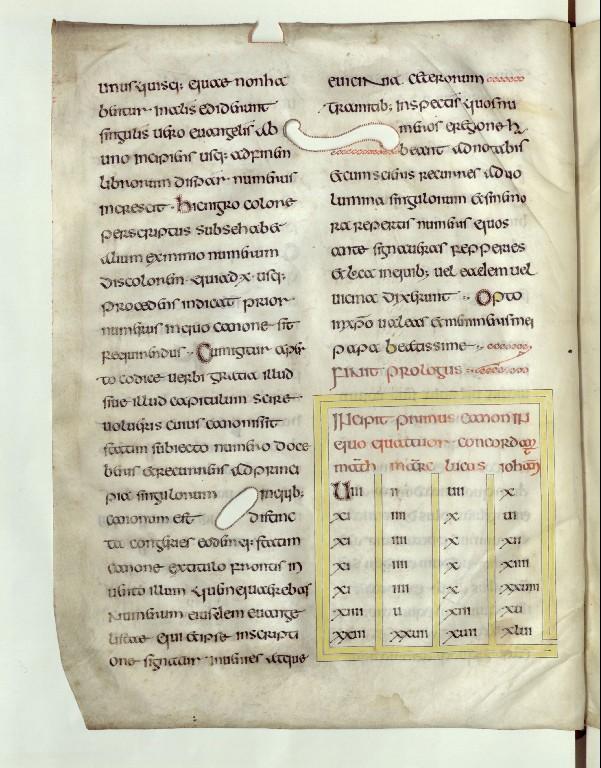 unusquisq; equae non ha
bentur in aliis ediderunt
singulis uero euangelis ab
uno incipiens usq; ad finem
librorum dispar numerus
increscit · hic nigro colore
perscriptus sub se habet
alium ex minio numerum
discolorem · qui ad · x · usq;
procedens indicat prior
numerus in quo canone sit
requirendus · Cum igitur aper
to codice uerbi gratia illud
siue illud capitulum scire
uolueris cuius canonis sit
statim subiecto numero doce
beris et recurrens ad princi
pia singulorum inquib;
canonum est distinc
ta congeries eodemq; statim
canone ex titulo frontis in
uento illum quem quaerebas
numerum eiusdem euange
listae qui et ipse inscripti
one signatur inuenies atque
e uicina ceterorum
tramitib; inspectis quos nu
meros e regione h
beant adnotabis
et cum scieris recurres ad uo
lumina singulorum et sine mo
ra repertis numeris quos
ante signaueras repperies
et loca in quib; uel eadem uel
uicina dixerunt · Opto
in xpo ualeas et memineris mei
papa beatissime
finit prologus
Incipit primus canon in
quo quattuor concordant
math marc lucas iohan
Uiii ii uii x
xi iiii x ui
xi iiii x xii
xi iiii x xiiii
xi iiii x xxuiii
xiiii u xiii xu
xxiii xxuii xuii xlui